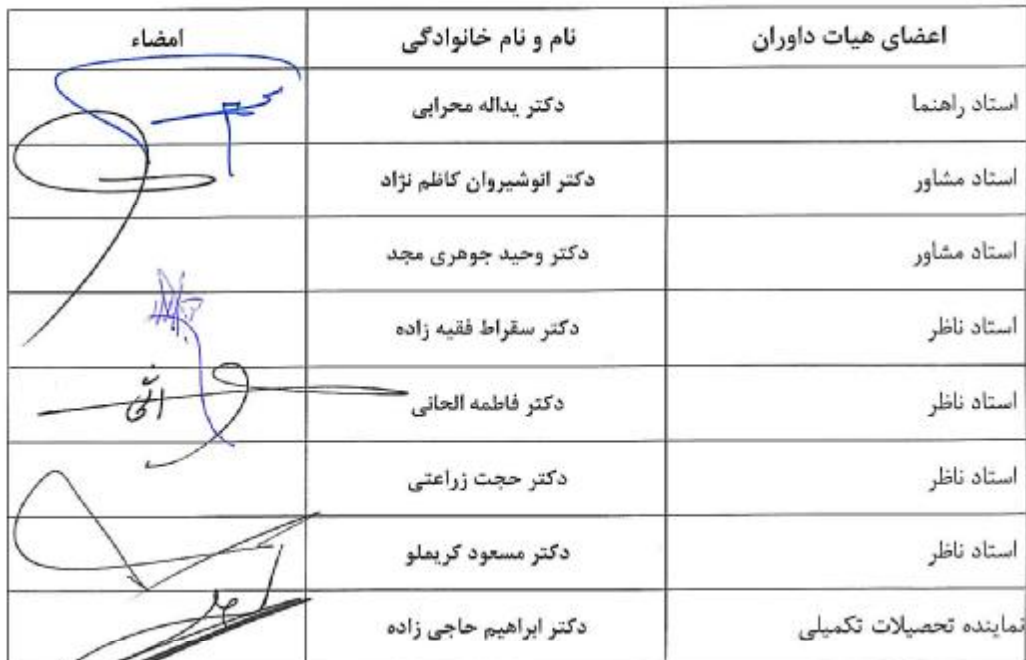 اعضای هیات داوران نام و نام خانوادگی امضاء
استاد راهنما دکتر یداله محرابی
استاد مشاور دکتر انوشیروان کاظم نژاد
استاد مشاور دکتر وحید جوهری مجد
استاد ناظر دکتر سقراط فقیه زاده
استاد ناظر دکتر فاطمه الحانی
استاد ناظر دکتر حجت زراعتی
استاد ناظر دکتر مسعود کریملو
نماینده تحصیلات تکمیلی دکتر ابراهیم حاجی زاده